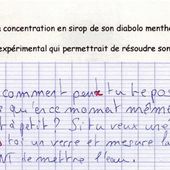 concentration en sirop de son diabolo menthe
expérimental qui permettrait de résoudre son
comment peux tu te pos
qu'en ce moment même
à petit? Si tu veux une
toi un verre et mesure la
NT de mettre l'eau.